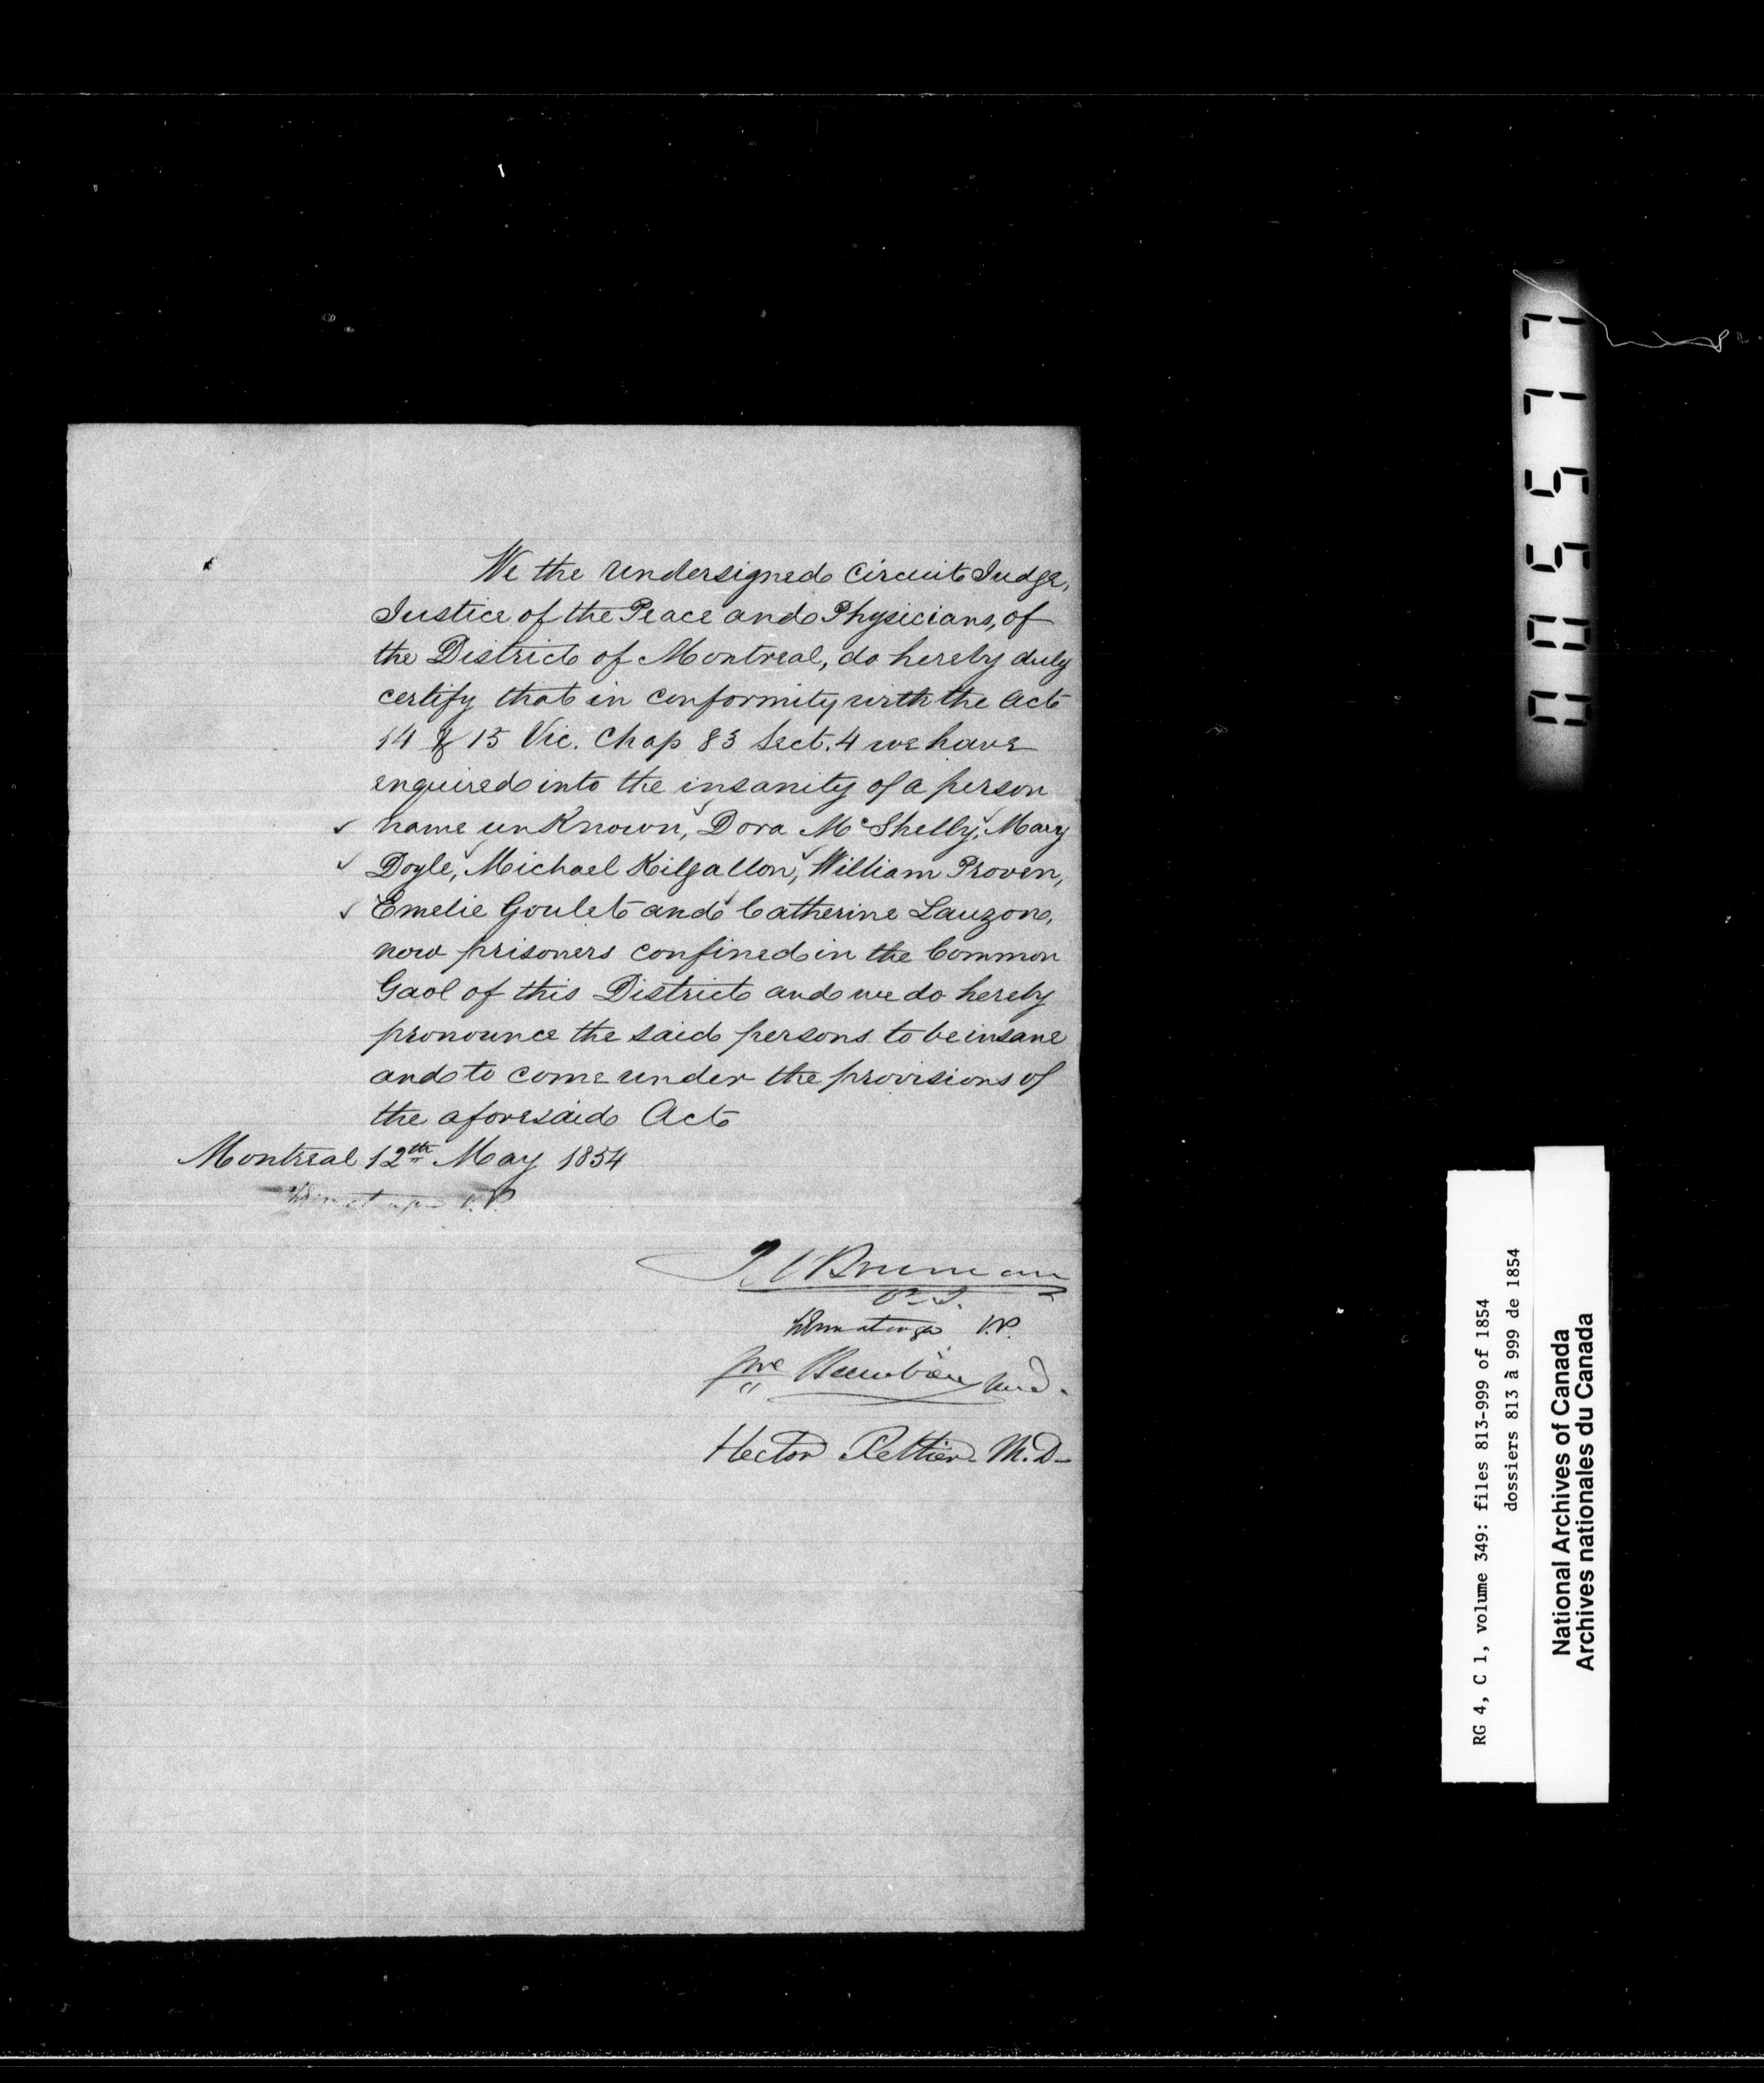 We the Undersigned Circuit Judge,
Justice of the Peace and Physicians, of
the District of Montreal, do hereby duly
certify that in conformity with the Act
14 & 15 Vic. Chap 83 Sect. 4 we have
enquired into the insanity of a person
name unknown, Dora McShelly, Mary
Doyle, Michael Kilgallon, William Proven,
Emelie Goulet and Catherine Lauzon,
now prisoners confined in the Common
Gaol of this District and we do hereby
pronounce the said persons to be insane
and to come under the provisions of
the aforesaid Act
Montreal 12th May 1854
J. P.
Bruneau
J. P.
M.D.
Hector Peltier M.D.
005577
RG 4, C 1, volume 349: files 813-999 of 1854
dossiers 813 à 999 de 1854
National Archives of Canada
Archives nationales du Canada